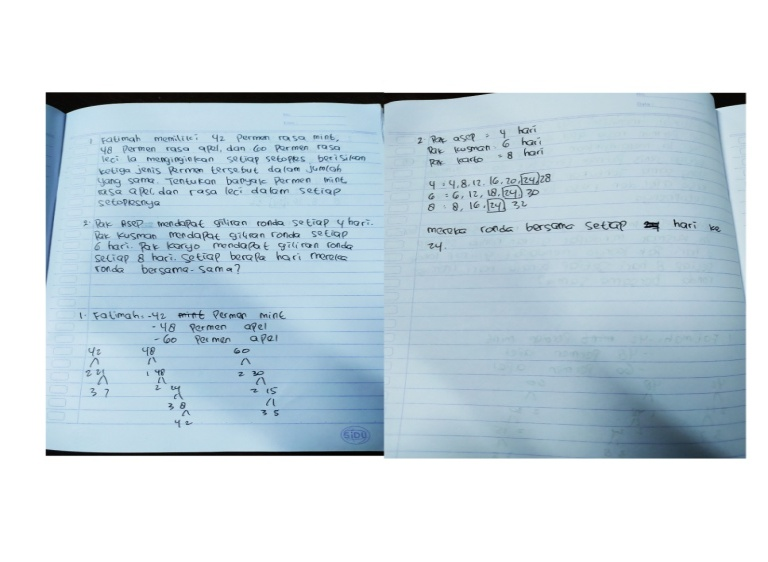 1 Fatimah memiliki 42 Permen rasa mint,
48 Permen rasa apel, dan 60 Permen rasa
leci Ia menginginkan setiap setoples berisikan
ketiga jenis Permen tersebut dalam jumlah
yang sama. Tentukan banyak Permen mint
rasa apel dan rasa leci dalam setiap
setoplesnya
2. Pak Asep mendapat giliran ronda setiap 4 hari.
Pak Kusman mendapat giliran ronda setiap
6 hari. Pak Karyo mendapat giliran ronda
setiap 8 hari. Setiap berapa hari mereka
ronda bersama-sama?
1. Fatimah: -42 mint Permen mint
-48 Permen apel
-60 Permen apel
42 48 60
2 21 1 48 2 30
3 7 2 24 2 15
3 8 3 5
4 2
2. Pak asep = 4 hari
Pak kusman = 6 hari
Pak karto = 8 hari
4 = 4,8,12,16,20,24,28
6 = 6,12,18,24,30
8 = 8,16,24,32
mereka ronda bersama setiap hari ke
24.